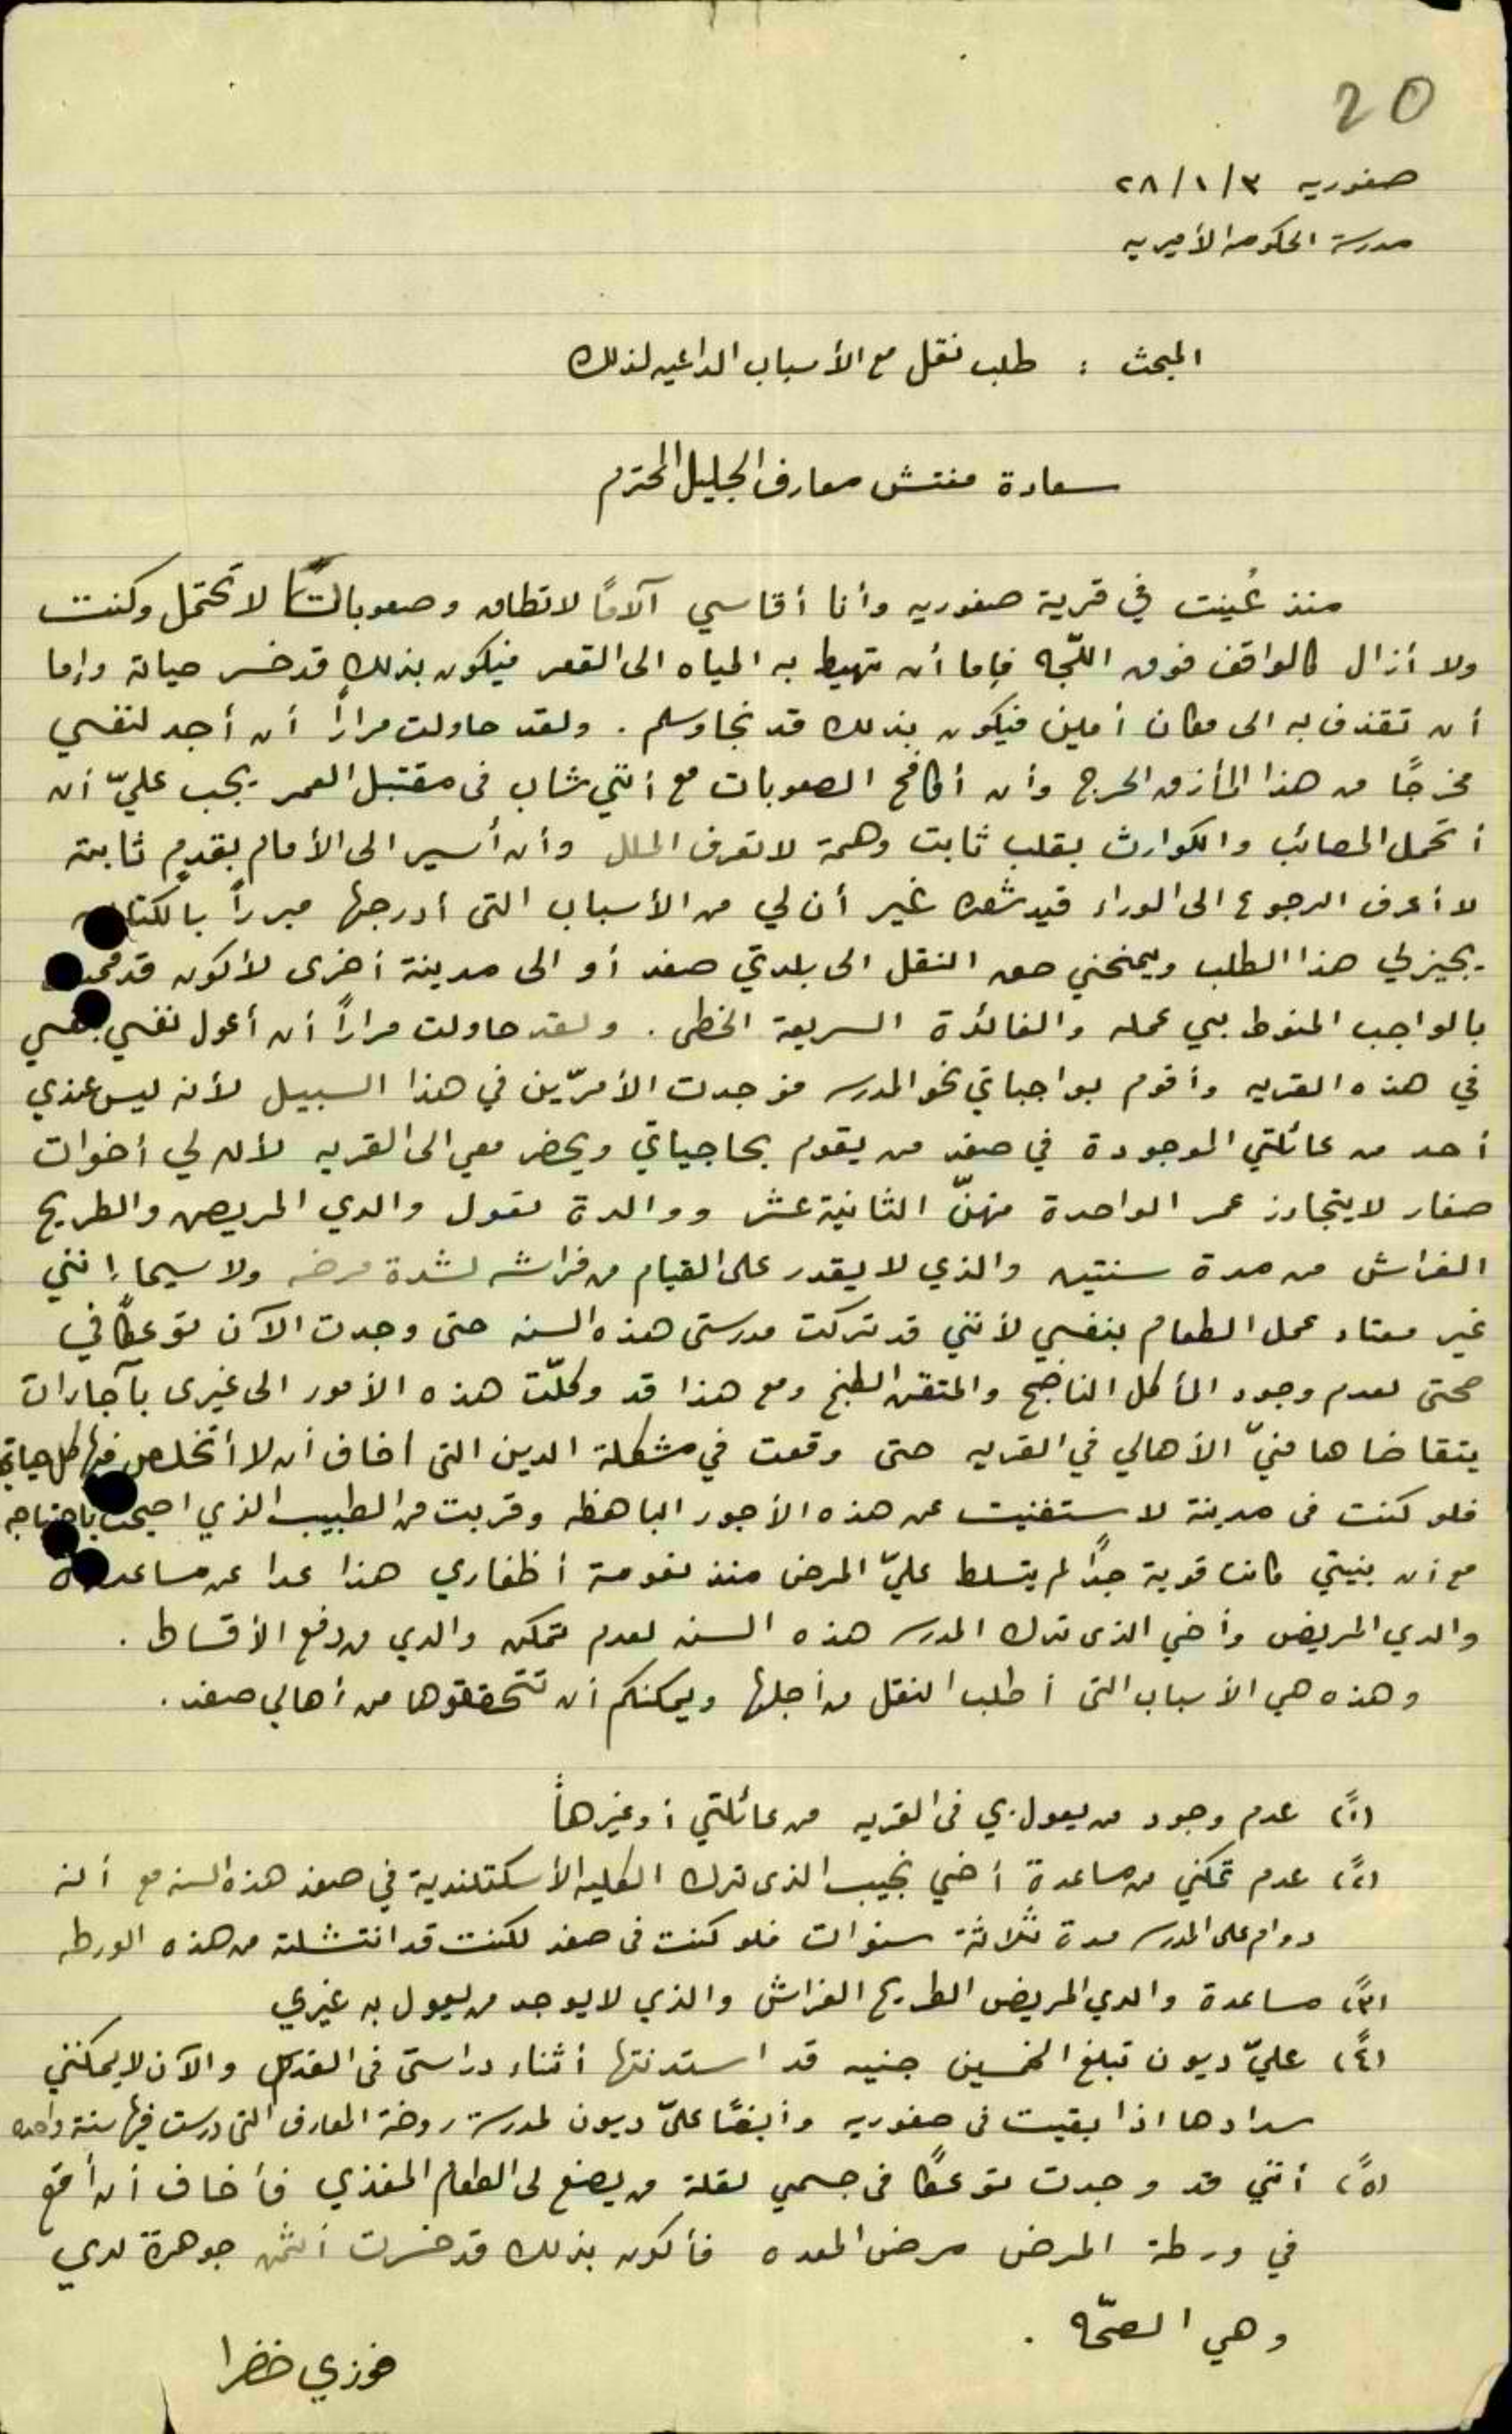 20
صفوريه ٣/١/٢٨
مدرسة الحكومه الأميريه
المبحث : طلب نقل مع الأسباب الداعيه لذلك
سعادة مفتش معارف الجليل المحترم
منذ عُينت في قرية صفوريه وأنا أقاسي آلامًا لا تطاق وصعوبات لا تحتمل وكنت
ولا أزال كالواقف فوق اللّجه فإما أن تهبط به المياه الى القعر فيكون بذلك قد خسر حياته وإما
أن تقذف به الى مكان أمين فيكون بذلك قد نجا وسلم . ولقد حاولت مراراً أن أجد لنفسي
مخرجًا من هذا المأزق الحرج وأن أكافح الصعوبات مع أنني شاب في مقتبل العمر يجب عليّ أن
أتحمل المصائب والكوارث بقلب ثابت وهمة لا تعرف الملل وأن أسير الى الأمام بقدمٍ ثابتة
لا أعرف الرجوع الى الوراء قيد شعره غير أن لي من الأسباب التي أدرجها مبرراً بالكتابه
يجيز لي هذا الطلب ويمنحني حق النقل الى بلدتي صفد أو الى مدينة أخرى لأكون قد قمت
بالواجب المنوط بي عمله والفائدة السريعة الخطى . ولقد حاولت مراراً أن أعول نفسي بنفسي
في هذه القريه وأقوم بواجباتي نحو المدرسه فوجدت الأمرّين في هذا السبيل لأنه ليس عندي
أحد من عائلتي الموجودة في صفد من يقوم بحاجياتي ويحضر معي الى القريه لأن لي أخوات
صغار لا يتجاوز عمر الواحدة منهنّ الثانية عشر ووالدة تعول والدي المريض والطريح
الفراش من مدة سنتين والذي لا يقدر على القيام من فراشه لشدة مرضه ولا سيما إنني
غير معتاد عمل الطعام بنفسي لأنني قد تركت مدرستي هذه السنه حتى وجدت الآن توعكًا في
صحتي لعدم وجود المأكل الناضج والمتقن الطبخ ومع هذا قد وكلّت هذه الأمور الى غيرى بآجارات
يتقاضاها منيّ الأهالي في القريه حتى وقعت في مشكلة الدين التي اخاف أن لا أتخلص منها كل حياتي
فلو كنت في مدينة لاستغنيت عن هذه الأجور الباهظه وقربت من الطبيب الذي اصبحت باحتياجه
مع أن بنيتي كانت قوية جدًا لم يتسلط عليّ المرض منذ نعومة أظفاري هذا عدا عن مساعدة
والدي المريض وأخي الذى ترك المدرسه هذه السنه لعدم تمكن والدي من دفع الأقساط .
وهذه هي الأسباب التي أطلب النقل من أجلها ويمكنكم أن تتحققوها من أهالي صفد .
(١ً) عدم وجود من يعول بي في القريه من عائلتي أو غيرها
(٢ً) عدم تمكني من مساعدة أخي نجيب الذى ترك الكليه الأسكتلندية في صفد هذه السنه مع أنه
دوام على المدرسه مدة ثلاثة سنوات فلو كنت في صفد لكنت قد انتشلته من هذه الورطه
(٣ً) مساعدة والدي المريض الطريح الفراش والذي لا يوجد من يعول به غيري
(٤ً) عليّ ديون تبلغ الخمسين جنيه قد استدنتها أثناء دراستي في القدس والآن لا يمكنني
سدادها اذا بقيت في صفوريه وأيضًا عليّ ديون لمدرسة روضة المعارف التي درست فيها سنة واحده
(٥ً) أنني قد وجدت توعكًا في جسمي لقلة من يصنع لى الطعام المغذي فأخاف أن أقع
في ورطة المرض مرض المعده فأكون بذلك قد خسرت أثمن جوهرة لدي
وهي الصحّه .
فوزي خضرا